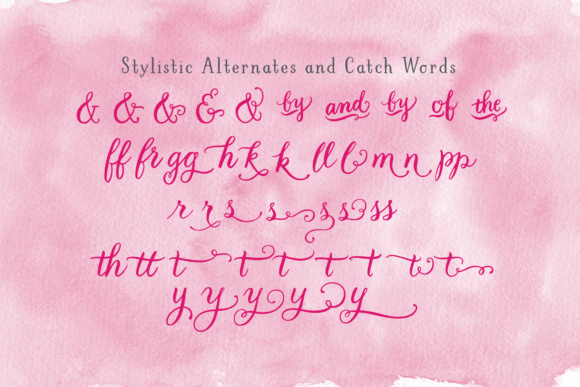 Stylistic Alternates and Catch Words
& & & & & by and by of the
ff fr gg h k k ll b m n pp
r r s s s s ss
th tt t t t t t t t
y y y y y